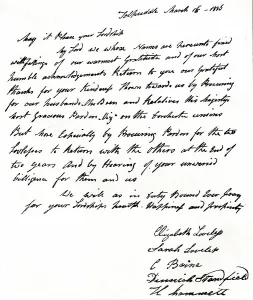 Tolpuddle March 16 - 1836
May it Please your Lordship
My Lord we whose Names are hereunto fixed
with feelings of our warmest Gratitude and of our most
humble acknowledgements Return to you our Gratefull
thanks for your kindness Shown towards us by Procuring
for our husbands, Children and Relatives his Majestys
most Gracious Pardon, on the Conduct
But More Especially by Procuring Pardon for the two
Lovelesses to Return with the others at the End of
two years And by Hearing of your unwearied
Dilligence for them and us
We will as in Duty Bound Ever Pray
for your Lordships health Happiness and prosperity
Elizabeth Loveless
Sarah Loveless
E Brine
Dinniah Stanfield
H Hammett